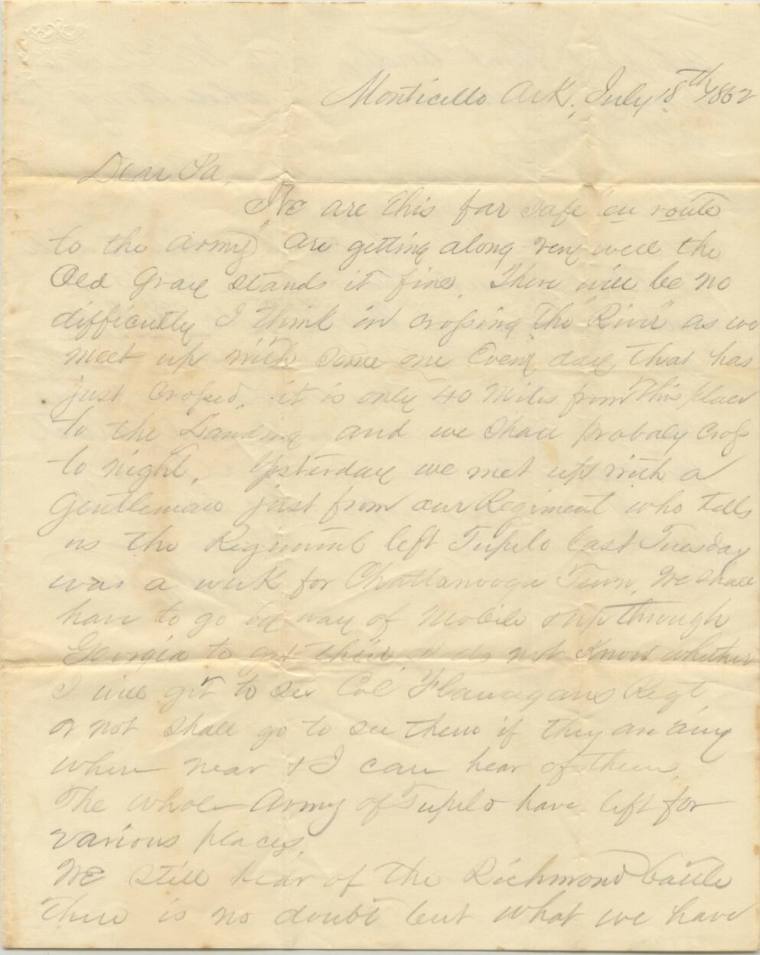 Monticello Ark, July 18th 1862
Dear Pa,
We are this far safe en route
to the army are getting along very well the
Old Gray stands it fine. There will be no
difficulty I think in crossing the River as we
meet up with some one Every day that has
just Crossed. it is only 40 Miles from this place
to the Landing and we shall probaly Cross
to night. Yesterday we met up with a
Gentleman just from our Regiment who tells
us the Regiment left Tupelo last Tuesday
was a week for Chattanooga Tenn. We shall
have to go by way of Mobile & up through
Georgia to get their, do not Know whether
I will get to see Col Flanagans Regt
or not shall go to see them if they are any
where near & I can hear of them.
The whole Army of Tupelo have left for
various places.
We still hear of the Richmond battle
there is no doubt but what we have